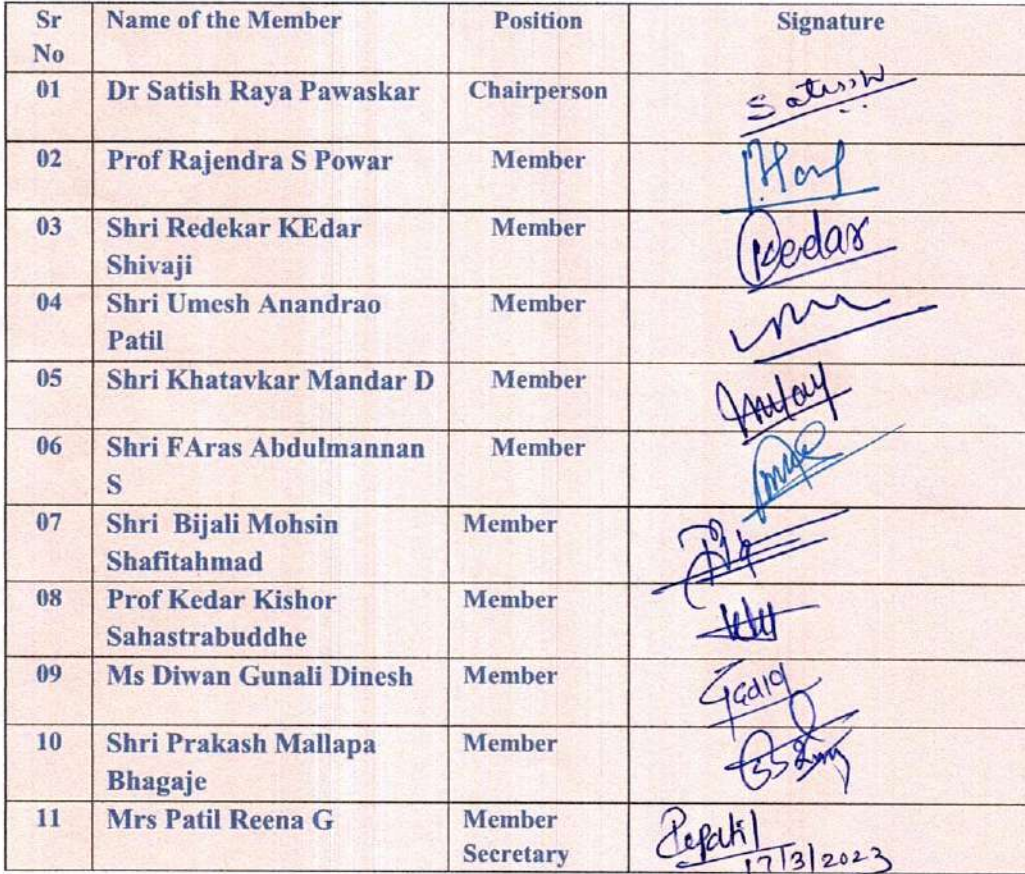 Sr Name of the Member Position Signature
No
01 Dr Satish Raya Pawaskar Chairperson
02 Prof Rajendra S Powar Member
03 Shri Redekar KEdar Member Kedar
Shivaji
04 Shri Umesh Anandrao Member
Patil
05 Shri Khatavkar Mandar D Member
06 Shri FAras Abdulmannan Member
S
07 Shri Bijali Mohsin Member
Shafitahmad
08 Prof Kedar Kishor Member
Sahastrabuddhe
09 Ms Diwan Gunali Dinesh Member
10 Shri Prakash Mallapa Member
Bhagaje
11 Mrs Patil Reena G Member
Secretary 17/3/2023